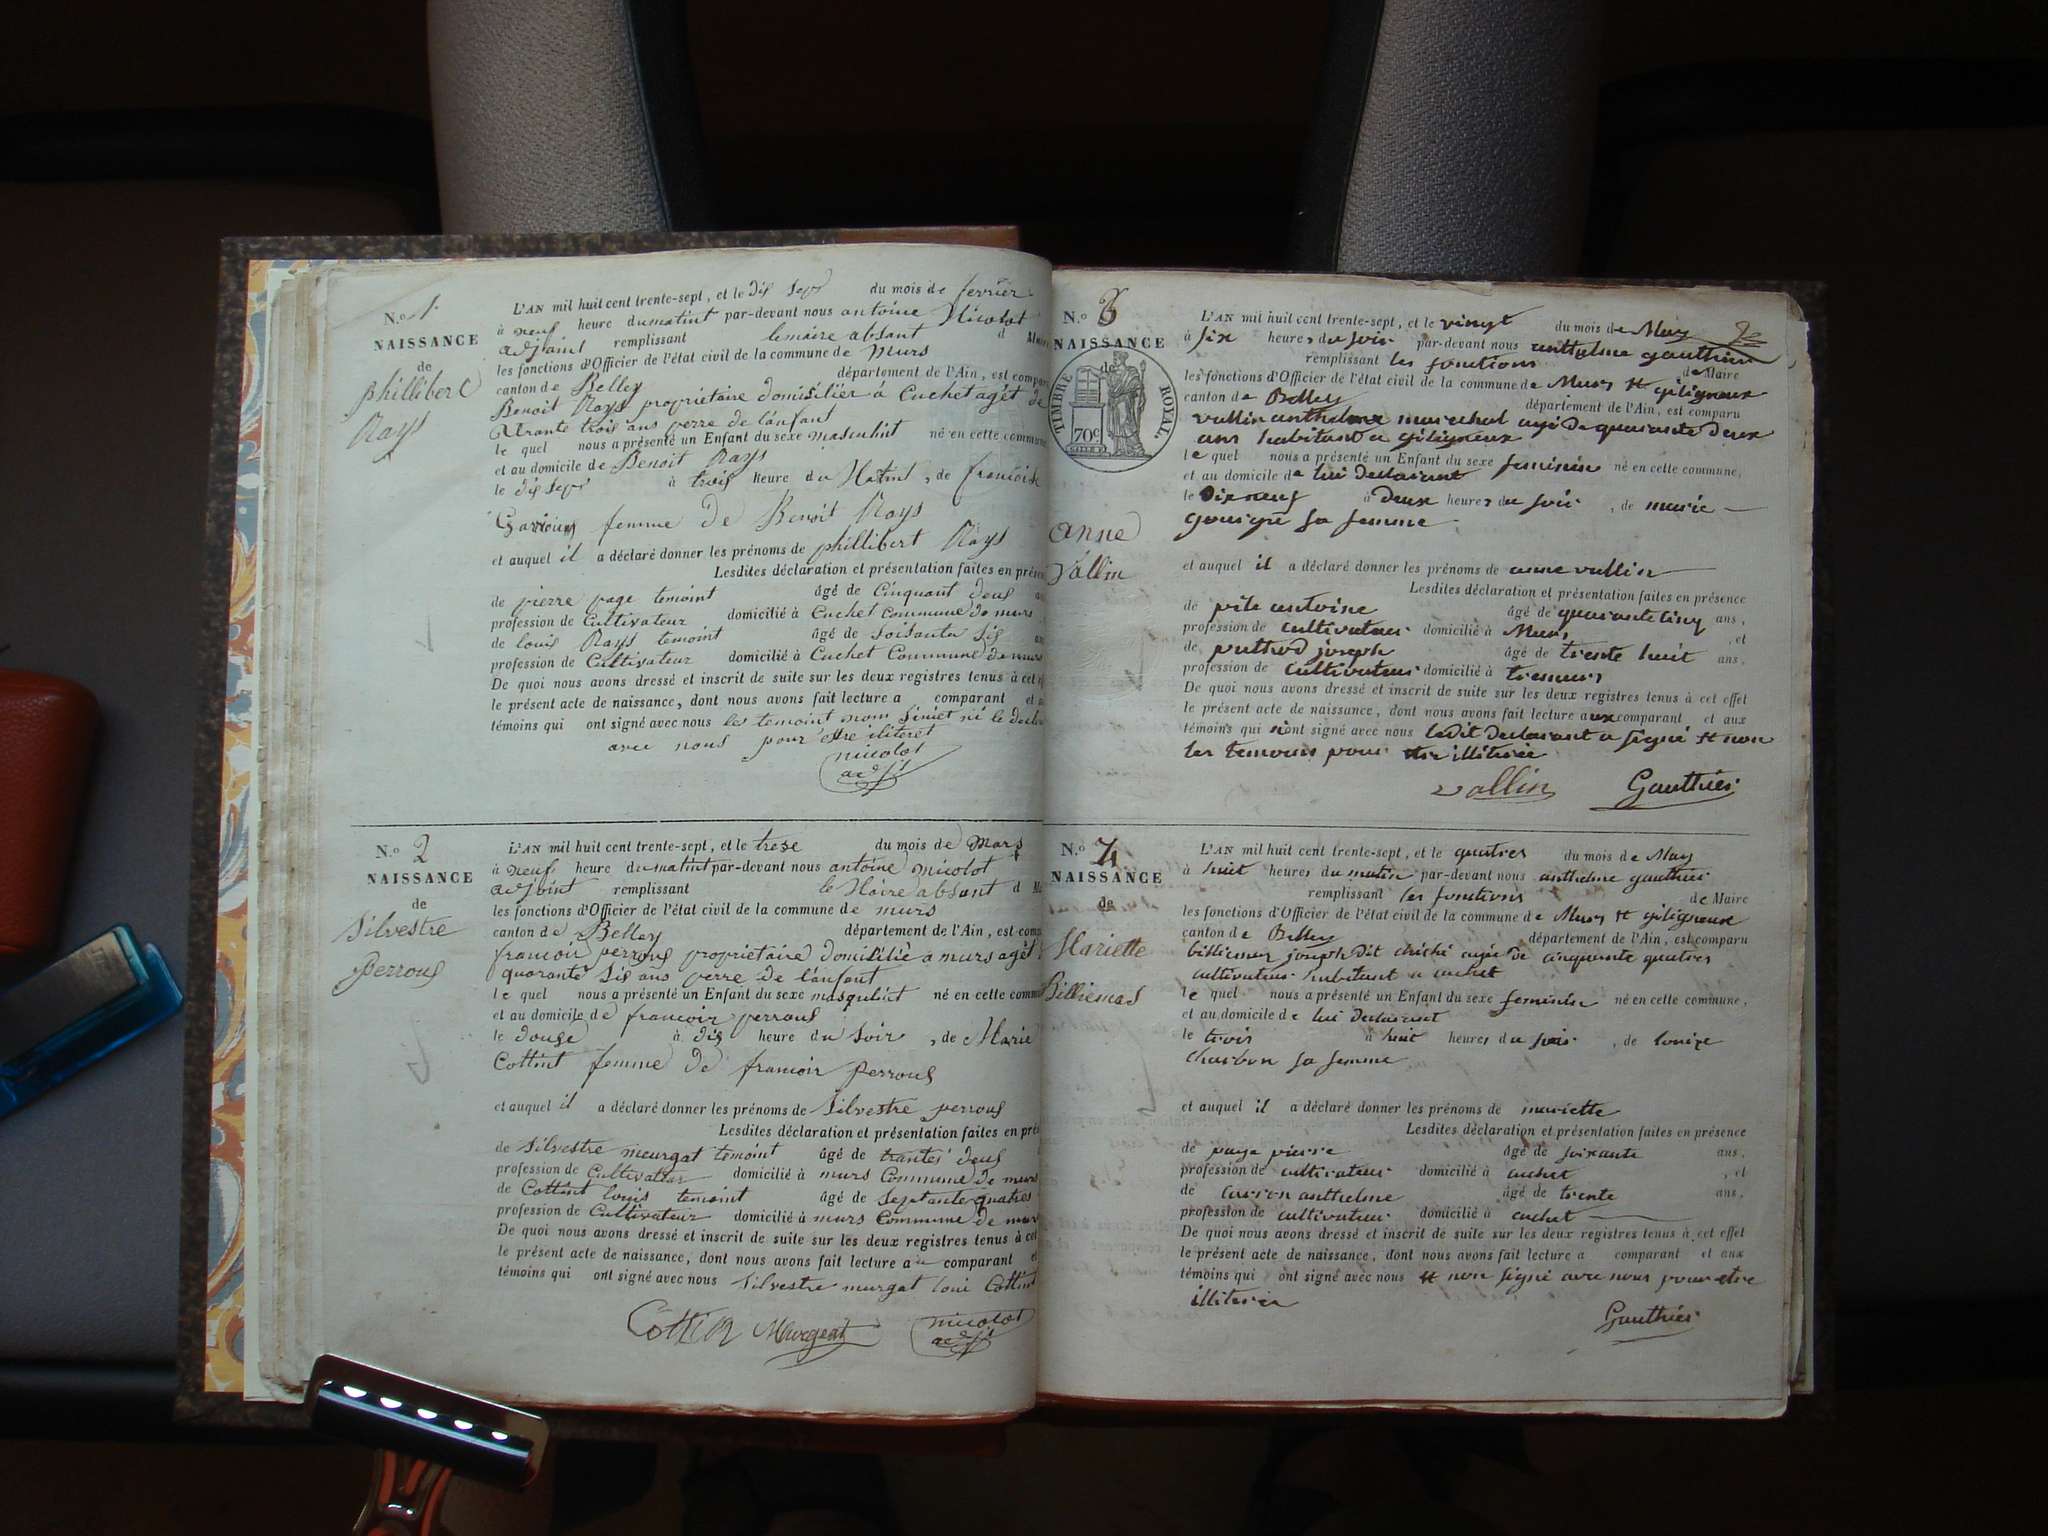 N.o 1.
NAISSANCE
de
phillibert
Rays
L'AN mil huit cent trente-sept, et le dis Sept du mois de fevrier
à neuf heure du matint par-devant nous antoine Nicolot
adjoint remplissant lemaire absant d
les fonctions d'Officier de l'état civil de la commune de Murs
canton de Belley département de l'Ain, est compar
Benoit Rays propriétaire domisilier à Cuchet agét de
trois ans perre de lanfant
le quel nous a présenté un Enfant du sexe masculint né en cette commune
et au domicile de Benoit Rays
le dis sept à trois heure du Matint, de francoise
femme de Benoit Rays
et auquel il a déclaré donner les prénoms de phillibert Rays
Lesdites déclaration et présentation faites en prése
de pierre page temoint âgé de Cinquant deus
profession de Cultivateur domicilié à Cuchet Commune de murs
de louis Rays temoint âgé de Soisante Sis
profession de Cultivateur domicilié à Cuchet Commune de murs
De quoi nous avons dressé et inscrit de suite sur les deux registres tenus à cet
le présent acte de naissance, dont nous avons fait lecture a comparant et
témoins qui ont signé avec nous les temoint nom Siniet ni le decla
avec nous pour etre iliteret
nicolot
adjt
N.o 2
NAISSANCE
de
Silvestre
Perrous
L'AN mil huit cent trente-sept, et le trese du mois de Mars
à neuf heure du matint par-devant nous antoine nicolot
adjoint remplissant le Maire absant d
les fonctions d'Officier de l'état civil de la commune de murs
canton de Belley département de l'Ain, est comp
francoir perrous propriétaire domisilié a murs agét
quarante Sis ans perre de lanfant
le quel nous a présenté un Enfant du sexe masqulint né en cette comm
et au domicile de francoir perrous
le douse à dis heure du Soir, de Marie
Cottint femme de francoir perrous
et auquel il a déclaré donner les prénoms de Silvestre perrous
Lesdites déclaration et présentation faites en pré
de Silvestre meurgat temoint âgé de trantes deus
profession de Cultivatteur domicilié à murs Commune de murs
de Cottint louis temoint âgé de Septante quatres
profession de Cultivateur domicilié à murs Commune de murs
De quoi nous avons dressé et inscrit de suite sur les deux registres tenus à cet
le présent acte de naissance, dont nous avons fait lecture au comparant et
témoins qui ont signé avec nous Silvestre murgat loui Cottint
Cottin Murgeat nicolot
adjt
N.o 3
NAISSANCE
de
TIMBRE ROYAL.
70c
anne
Vallin
L'AN mil huit cent trente-sept, et le vingt du mois de May
à six heures du soir par-devant nous anthelme gauthier
remplissant les fonctions de Maire
les fonctions d'Officier de l'état civil de la commune de Murs et giligneux
canton de Belley département de l'Ain, est comparu
vallin anthelme marechal agé de quarante deux
ans habitant a giligneux
le quel nous a présenté un Enfant du sexe feminin né en cette commune,
et au domicile de lui declarant
le dix neuf à deux heures du soir, de marie
sa femme
et auquel il a déclaré donner les prénoms de anne vallin
Lesdites déclaration et présentation faites en présence
de antoine âgé de quarante cinq ans,
profession de cultivateur domicilié à Murs, et
de puthod joseph âgé de trente huit ans,
profession de cultivateur domicilié à
De quoi nous avons dressé et inscrit de suite sur les deux registres tenus à cet effet
le présent acte de naissance, dont nous avons fait lecture aux comparant et aux
témoins qui n'ont signé avec nous ledit declarant a signé et non
les temoins pour etre illiterée
vallin Gauthier
N.o 4
NAISSANCE
de
Mariette
Billiemas
L'AN mil huit cent trente-sept, et le quatres du mois de May
à huit heures du matin par-devant nous anthelme gauthier
remplissant les fonctions de Maire
les fonctions d'Officier de l'état civil de la commune de Murs et giligneux
canton de Belley département de l'Ain, est comparu
joseph dit agé de cinquante quatres
cultivateur habitant a cuchet
le quel nous a présenté un Enfant du sexe feminin né en cette commune,
et au domicile de lui declarant
le trois à huit heures du soir, de louise
charbon sa femme
et auquel il a déclaré donner les prénoms de mariette
Lesdites déclaration et présentation faites en présence
de page pierre âgé de soixante ans,
profession de cultivateur domicilié à cuchet, et
de anthelme âgé de trente ans,
profession de cultivateur domicilié à cuchet
De quoi nous avons dressé et inscrit de suite sur les deux registres tenus à cet effet
le présent acte de naissance, dont nous avons fait lecture a comparant et aux
témoins qui ont signé avec nous et non signé avec nous pour etre
illiterée
Gauthier